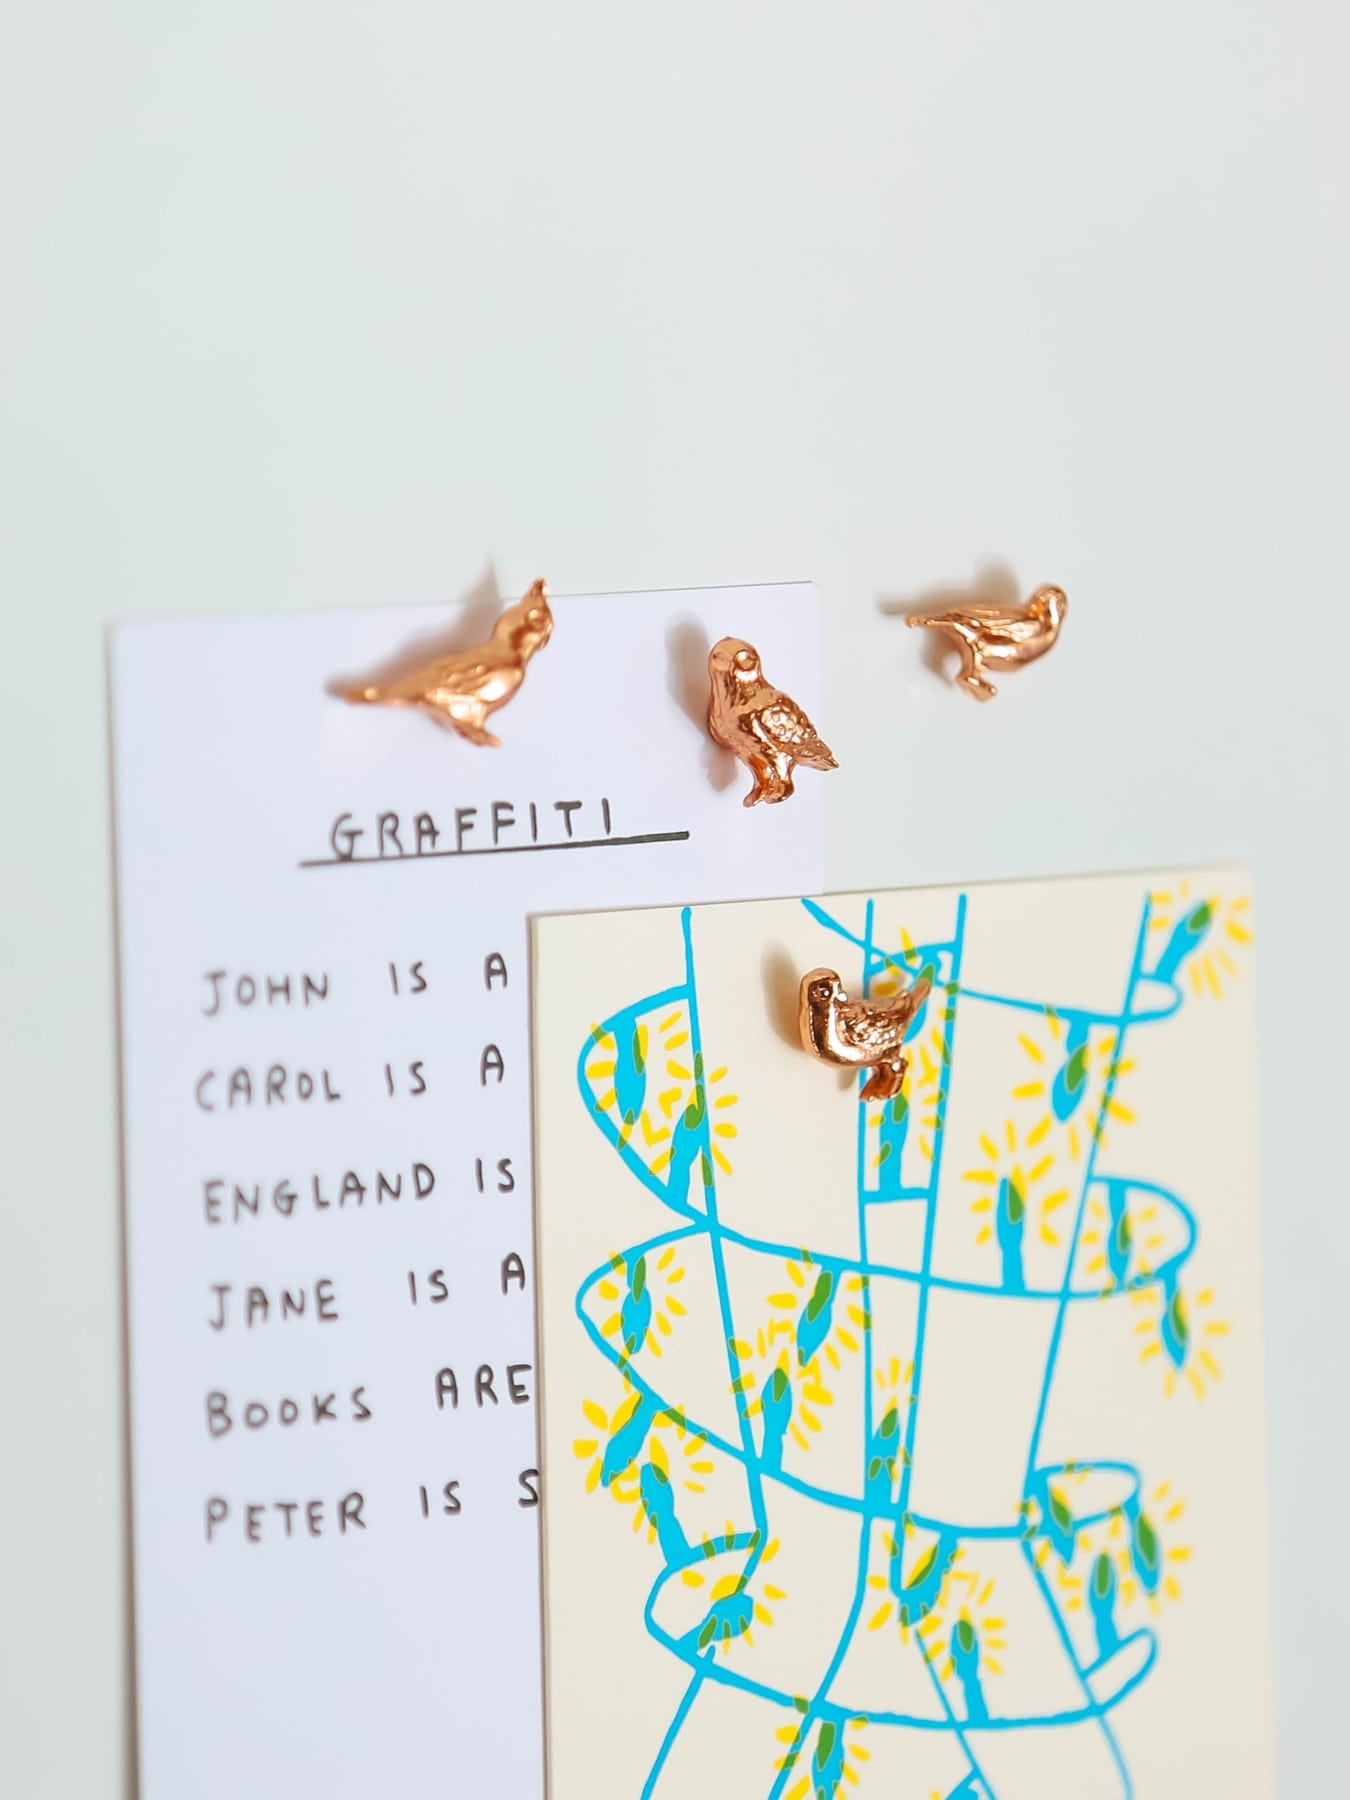 GRAFFITI
JOHN IS A
CAROL IS A
ENGLAND IS
JANE IS A
BOOKS ARE
PETER IS S